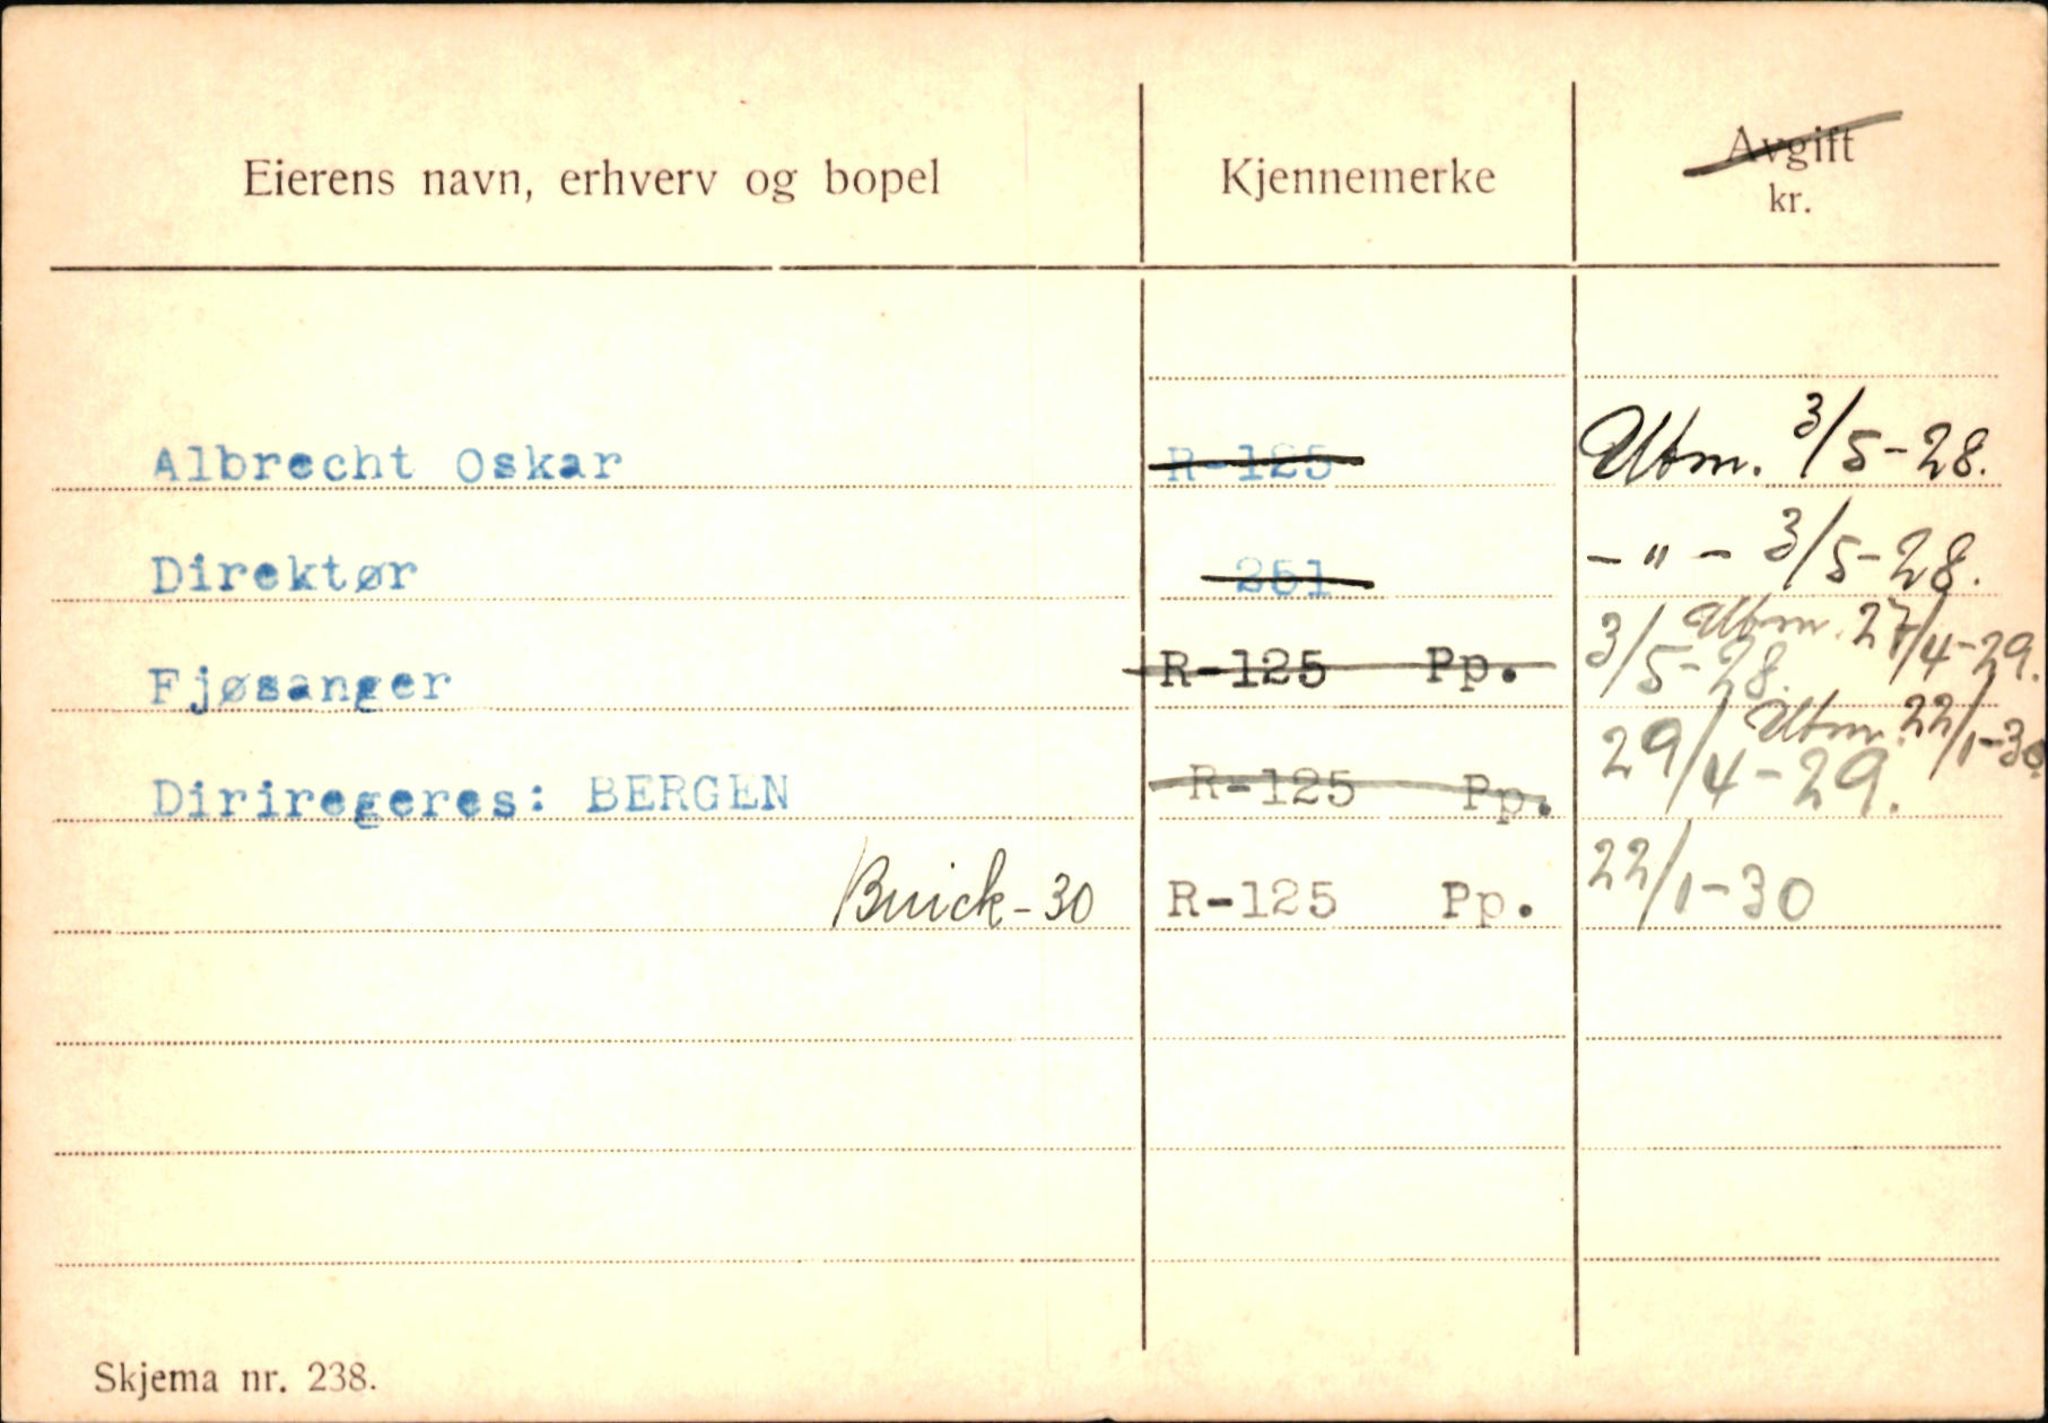 Eierens navn, erhverv og bopel Kjennemerke Avgift
kr.
Albrecht Oskar R-125 Utm. 3/5-28.
Direktør 251 - " - 3/5-28.
Utm. 27/4-29.
Fjøsanger R-125 Pp. 3/5-28.
Utm. 22/1-30
Diriregeres: BERGEN R-125 Pp. 29/4-29.
Buick-30 R-125 Pp. 22/1-30
Skjema nr. 238.